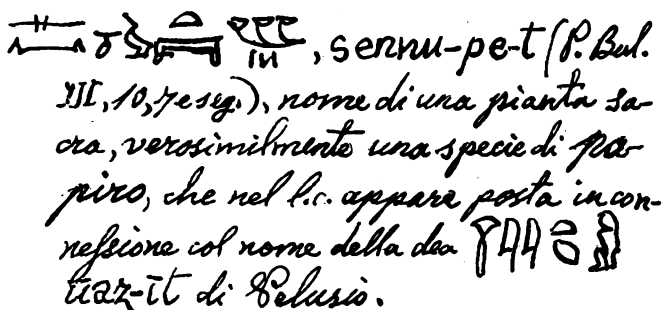 , sennu-pe-t (P. Bul.
III, 10, 7 e seg.), nome di una pianta sa-
cra, verosimilmente una specie di pa-
piro, che nel l.c. appare posta in con-
nessione col nome della dea
uaz-īt di Pelusio.